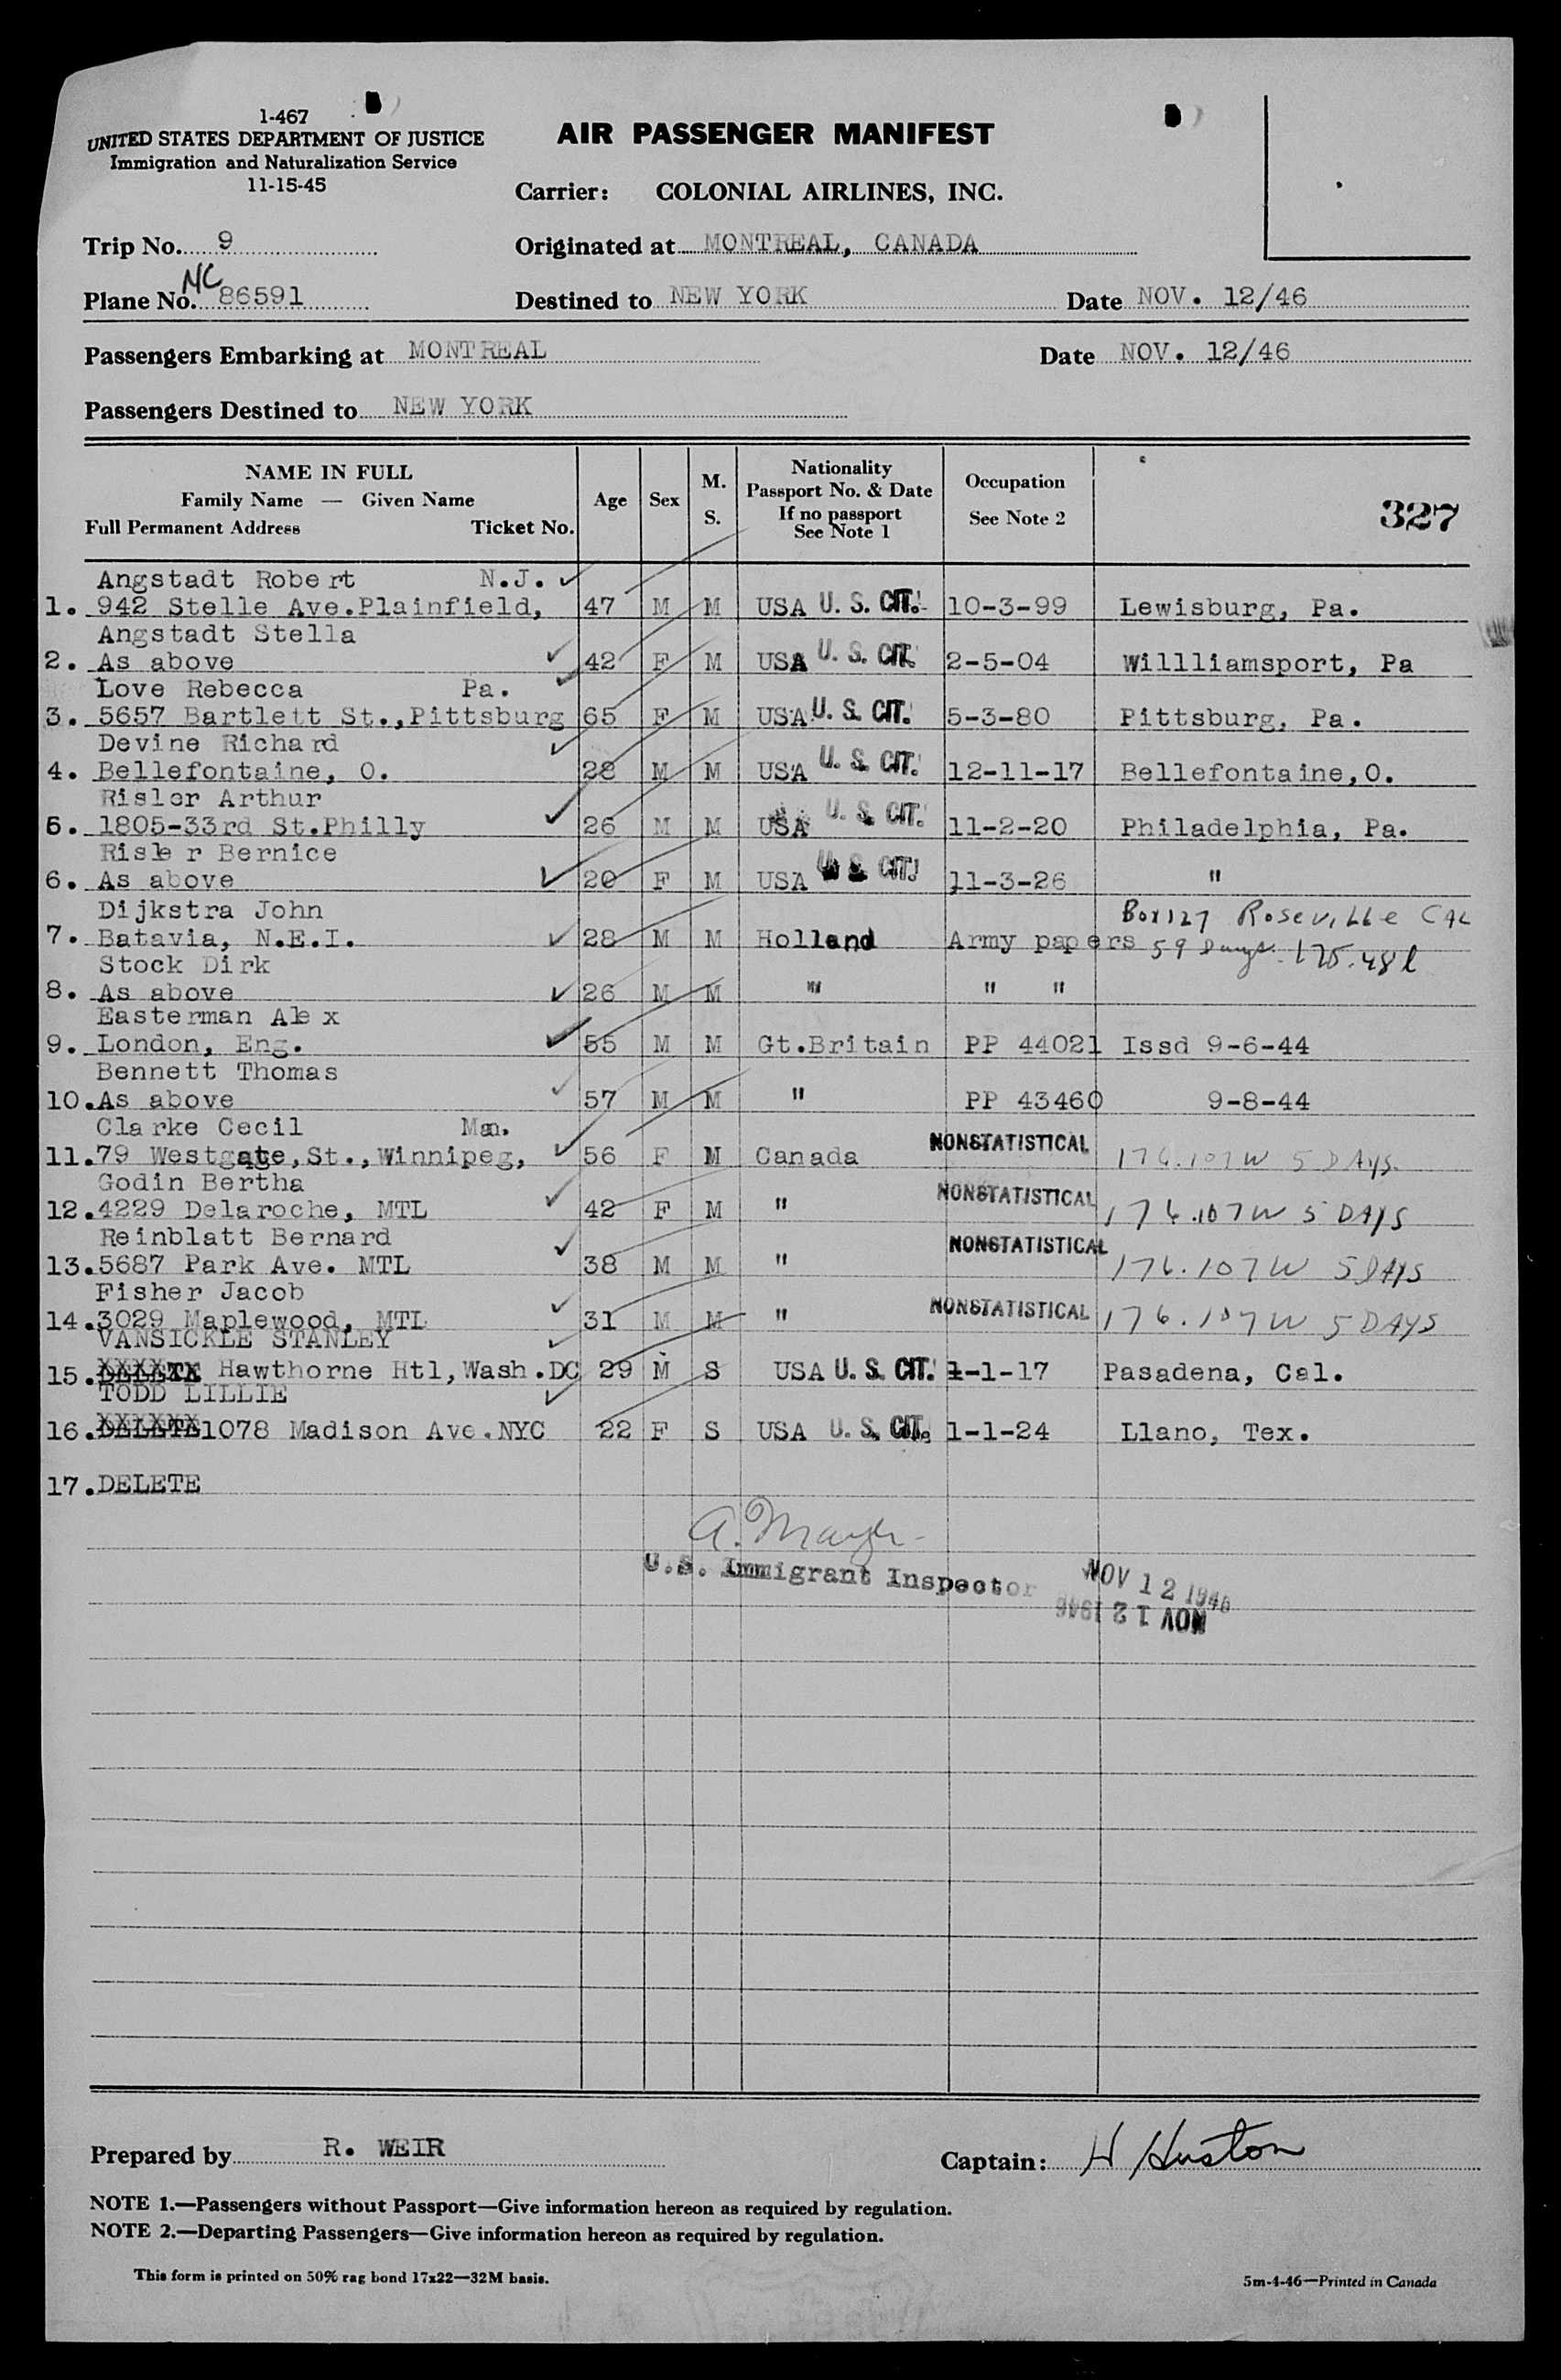 1-467
UNITED STATES DEPARTMENT OF JUSTICE
Immigration and Naturalization Service
11-15-45
AIR PASSENGER MANIFEST
Carrier: COLONIAL AIRLINES, INC.
Trip No. 9
Originated at MONTREAL, CANADA
Plane No. NC 86591
Destined to NEW YORK
Date NOV. 12/46
Passengers Embarking at MONTREAL
Date NOV. 12/46
Passengers Destined to NEW YORK
NAME IN FULL
Family Name — Given Name
Full Permanent Address Ticket No.
Age
Sex
M.
S.
Nationality
Passport No. & Date
If no passport
See Note 1
Occupation
See Note 2
327
Angstadt Robert N.J.
1. 942 Stelle Ave.Plainfield, 47 M M USA U. S. CIT. 10-3-99 Lewisburg, Pa.
Angstadt Stella
2. As above 42 F M USA U. S. CIT. 2-5-04 Willliamsport, Pa
Love Rebecca Pa.
3. 5657 Bartlett St.,Pittsburg 65 F M USA U. S. CIT. 5-3-80 Pittsburg, Pa.
Devine Richard
4. Bellefontaine, O. 28 M M USA U. S. CIT. 12-11-17 Bellefontaine,O.
Risler Arthur
5. 1805-33rd St.Philly 26 M M USA U. S. CIT. 11-2-20 Philadelphia, Pa.
Risler Bernice
6. As above 20 F M USA U. S. CIT. 11-3-26 "
Dijkstra John Box 127 Roseville CAL
7. Batavia, N.E.I. 28 M M Holland Army papers 59 Days 175.48l
Stock Dirk
8. As above 26 M M " " "
Easterman Alex
9. London, Eng. 55 M M Gt.Britain PP 44021 Issd 9-6-44
Bennett Thomas
10. As above 57 M M " PP 43460 9-8-44
Clarke Cecil Man.
11. 79 Westgate,St.,Winnipeg, 56 F M Canada NONSTATISTICAL 176.107W 5 DAys
Godin Bertha
12. 4229 Delaroche, MTL 42 F M " NONSTATISTICAL 176.107W 5 DAYS
Reinblatt Bernard
13. 5687 Park Ave. MTL 38 M M " NONSTATISTICAL 176.107W 5 DAYS
Fisher Jacob
14. 3029 Maplewood, MTL 31 M M " NONSTATISTICAL 176.107W 5 DAYS
VANSICKLE STANLEY
15. DELETE Hawthorne Htl,Wash.DC 29 M S USA U. S. CIT. 1-1-17 Pasadena, Cal.
TODD LILLIE
16. DELETE 1078 Madison Ave.NYC 22 F S USA U. S. CIT. 1-1-24 Llano, Tex.
17. DELETE
U.S. Immigrant Inspector
NOV 12 1946
NOV 12 1946
Prepared by R. WEIR
Captain: H Huston
NOTE 1.—Passengers without Passport—Give information hereon as required by regulation.
NOTE 2.—Departing Passengers—Give information hereon as required by regulation.
This form is printed on 50% rag bond 17x22—32M basis.
5m-4-46—Printed in Canada